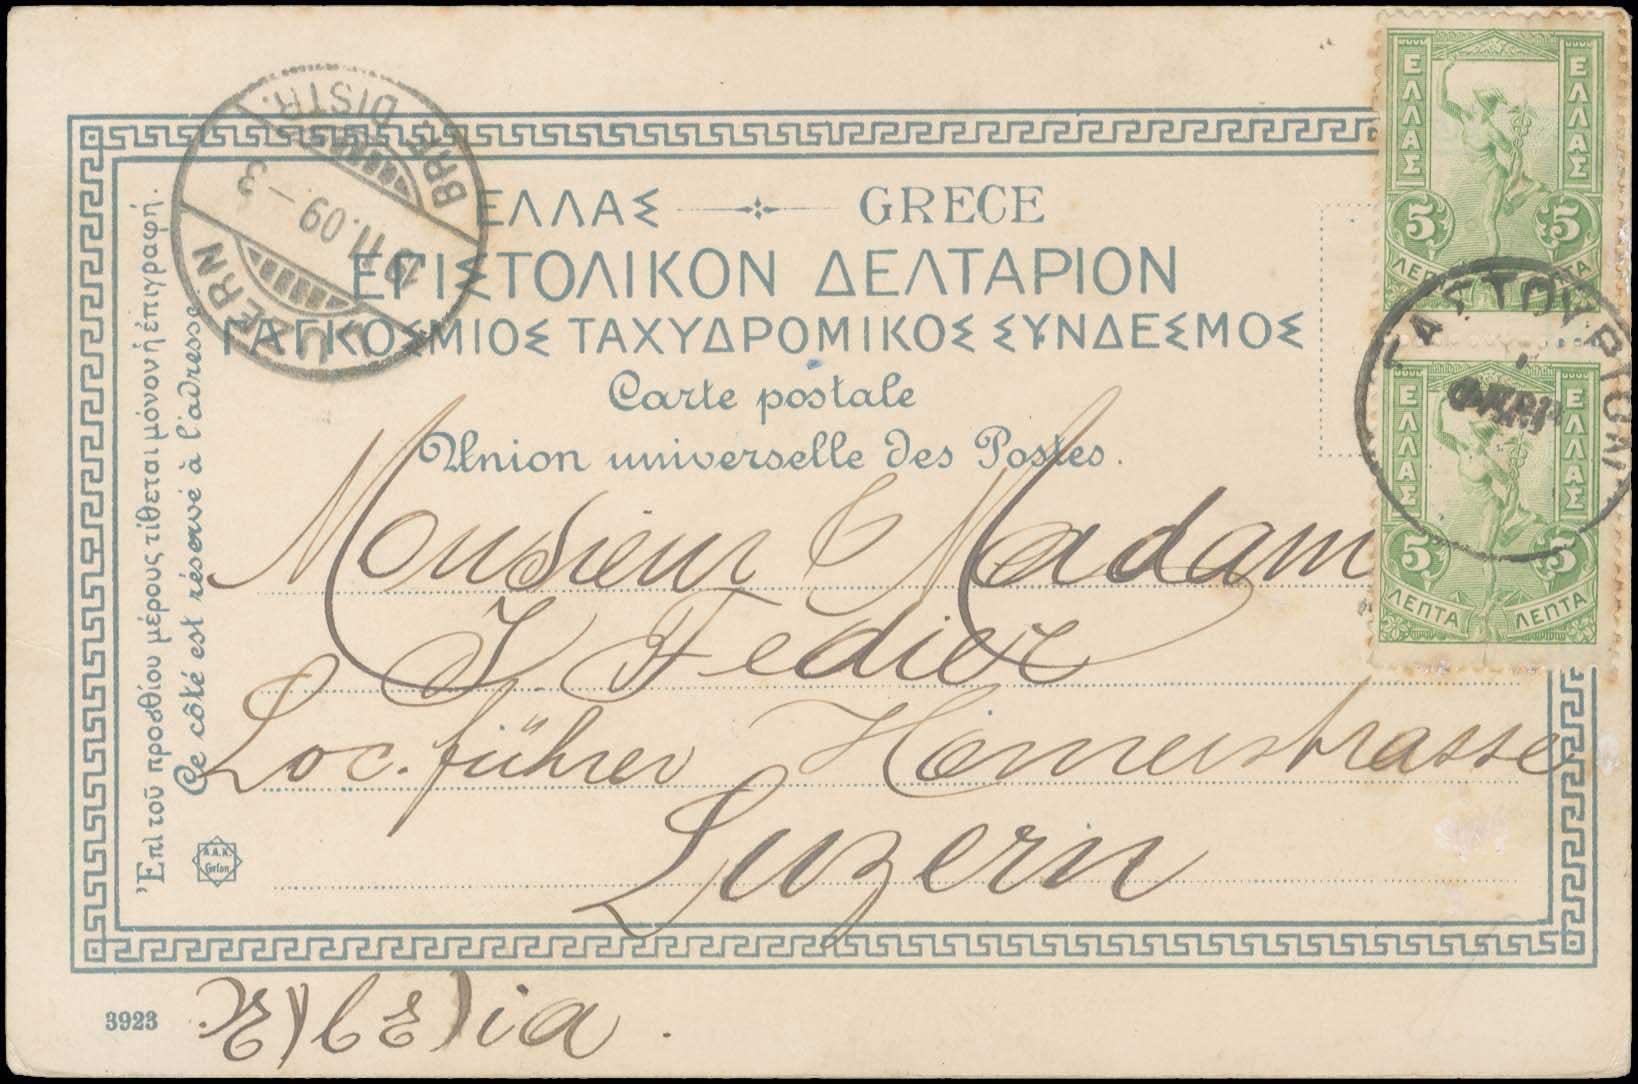 ΕΛΛΑΣ GRECE
ΕΠΙΣΤΟΛΙΚΟΝ ΔΕΛΤΑΡΙΟΝ
ΠΑΓΚΟΣΜΙΟΣ ΤΑΧΥΔΡΟΜΙΚΟΣ ΣΥΝΔΕΣΜΟΣ
Carte postale
Union universelle des Postes.
Ἐπὶ τοῦ προσθίου μέρους τίθεται μόνον ἡ ἐπιγραφή.
Ce côté est réservé à l'adresse
LUZERN
11.09 - 3
BRF. DISTR.
ΕΛΛΑΣ ΕΛΛΑΣ
5 5
ΛΕΠΤΑ ΛΕΠΤΑ
ΕΛΛΑΣ ΕΛΛΑΣ
5 5
ΛΕΠΤΑ ΛΕΠΤΑ
Monsieur & Madam
J. Fedier
Loc. führer Hirnerstrasse
Luzern
Ἑλβελια.
3923